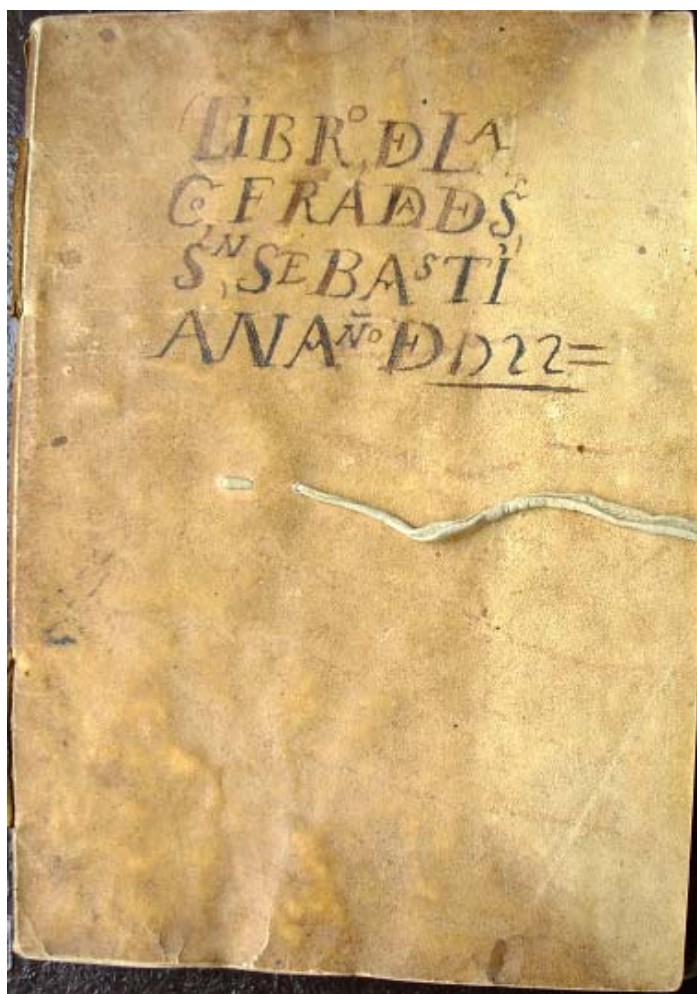 LIBRO DE LA
COFRADA DE S,R
S,N SEBASTI
AN AÑO DE D22=